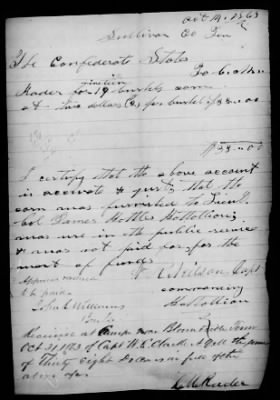 Oct 14, 1863
Sullivan Co Tenn
The Confederate States
To
nineteen
for 19 bushels corn
at two dollars per bushel $38.00
$38.00
I certify that the above account
is accurate & just that the
corn was furnished to Lieut
Col James Battalion,
was use in the public service
& was not paid for, for the
want of funds.
Capt
Approved
to be paid commanding
John Williams Battalion
Received at Camp near Tenn
Oct 21, 1863 of Capt W. E. Clark A Q M the sum
of Thirty Eight Dollars in full of the
above